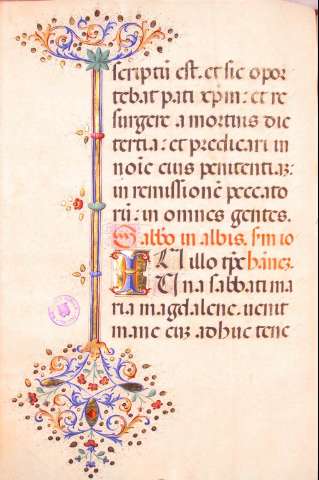 scriptū est. et sic opor
tebat pati xp̄m: et re
surgere a mortuis die
tertia: et predicari in
noīe eius penitentiaz:
in remissionē peccato
rū: in omnes gentes.
Sabbo in albis. s̄m io
IN illo tp̄e hānez
Una sabbati ma
ria magdalene uenit
mane cuz adhuc tene